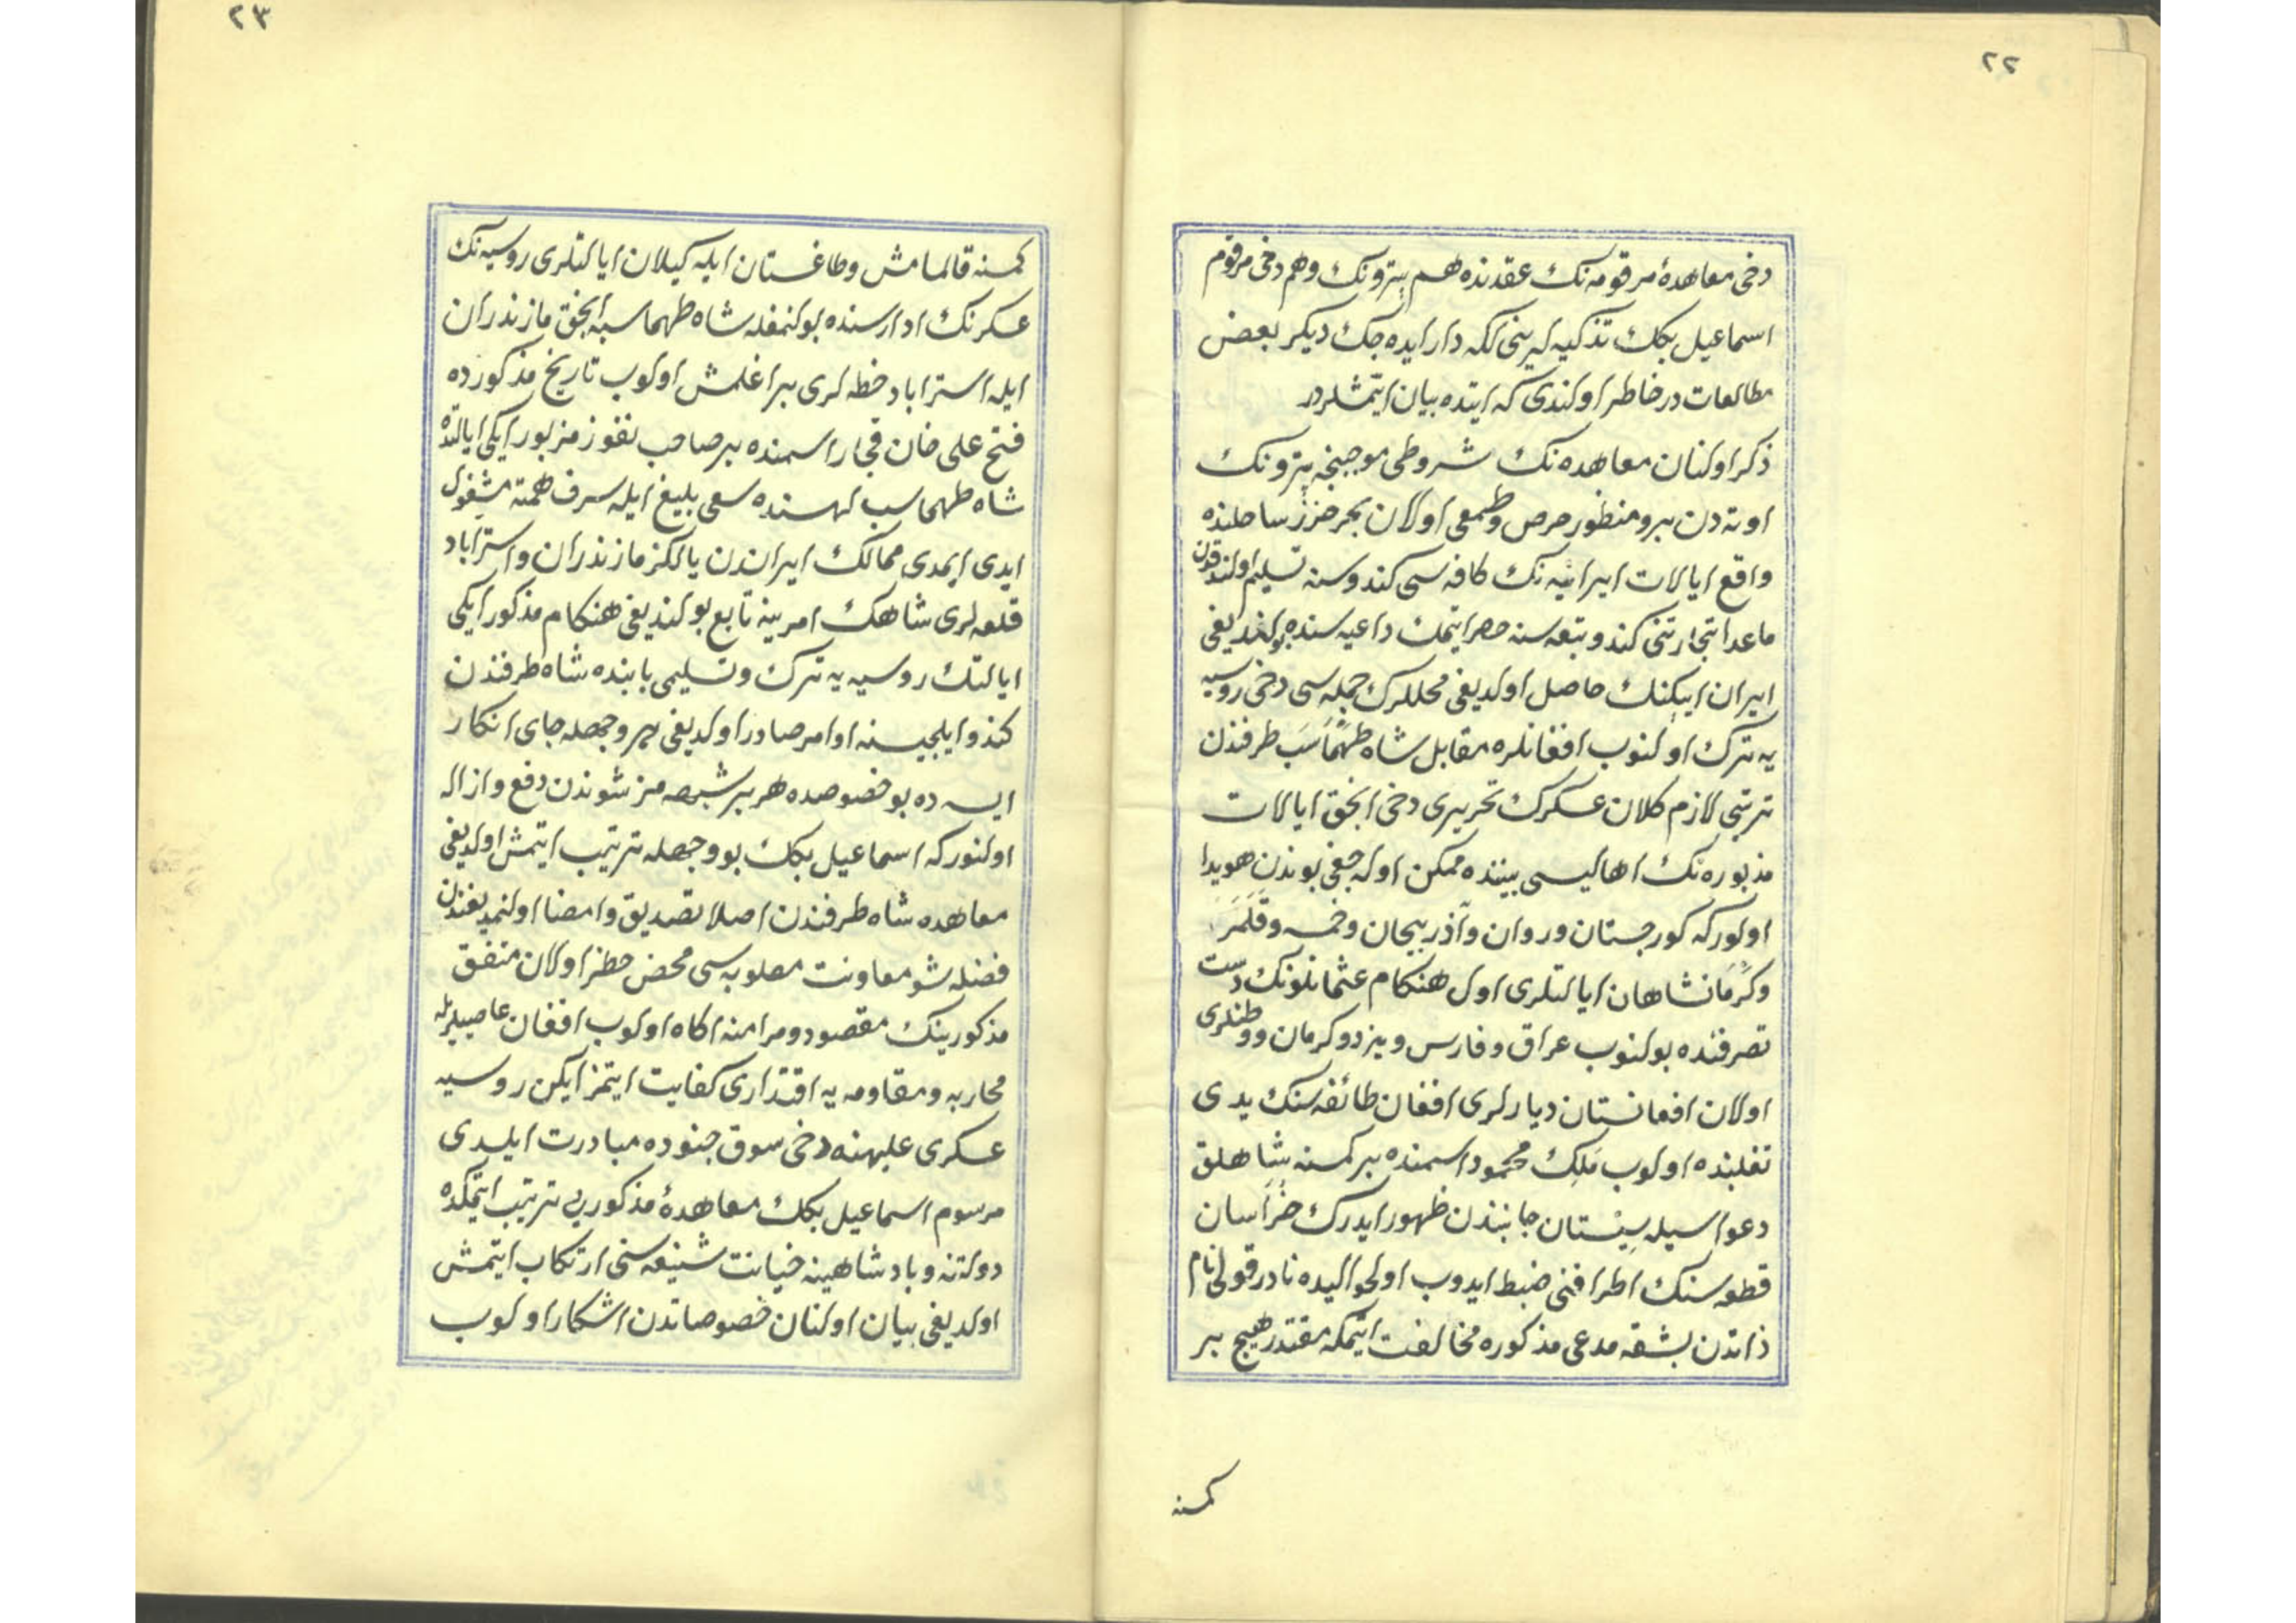 ٢٢
دخی معاهدهٔ مرقومه‌نك عقدنده هم پترونك وهم دخی مرقوم
اسماعیل بكك تذكیه لرینی لكه دار ایده جك دیكر بعض
مطالعات در خاطر اولندی كه ایتده بیان ایتمشلردر
ذكر اولنان معاهده نك شروطی موجبنجه پترونك
اوته دن برو منظور حرص وطمعی اولان بحر خزر ساحلنده
واقع ایالات ایرانیه نك كافه سی كندوسنه تسلیم اولندقدن
ماعدا تجارتنی كندو تبعه سنه حصر ایتمك داعیه سنده بولندیغی
ایران ایپكنك حاصل اولدیغی محللرك جمله سی دخی روسیه
یه ترك اولنوب افغانلره مقابل شاه طهماسب طرفندن
ترتیبی لازم كلان عسكرك تحریری دخی انجق ایالات
مذبوره نك اهالیسی بیننده ممكن اوله جغی بوندن هویدا
اولوركه كورجستان وروان وآذربیجان وخمسه وقلمرَ
وكرمانشاهان ایالتلری اول هنكام عثمانلونك دست
تصرفنده بولنوب عراق وفارس ویزد وكرمان ووطنلری
اولان افغانستان دیارلری افغان طائفه سنك یدی
تغلبنده اولوب ملك محمود اسمنده بر كمسنه شاهلق
دعواسیله سیستان جانبندن ظهور ایدرك خراسان
قطعه سنك اطرافنی ضبط ایدوب اولحوالیده نادر قولی نام
ذاتدن بشقه مدعی مذكوره مخالفت ایتمكه مقتدر هیچ بر
كمسنه
٢٣
كمسنه قالمامش وطاغستان ایله كیلان ایالتلری روسیه نك
عسكرنك اداره سنده بولنمغله شاه طهماسبه انجق مازندران
ایله استراباد خطه لری براغلمش اولوب تاریخ مذكورده
فتح علی خان قجار اسمنده بر صاحب نفوز مزبور ایكی ایالتده
شاه طهماسب لهسنده سعی بلیغ ایله صرف همته مشغول
ایدی ایمدی ممالك ایراندن یالكز مازندران واستراباد
قلعه لری شاهك امرینه تابع بولندیغی هنكام مذكور ایكی
ایالتك روسیه یه ترك وتسلیمی بابنده شاه طرفندن
كندو ایلچیسنه اوامر صادر اولدیغی بروجهله جای انكار
ایسه ده بو خصوصده هر بر شبهه مز شوندن دفع وازاله
اولنوركه اسماعیل بكك بووجهله ترتیب ایتمش اولدیغی
معاهده شاه طرفندن اصلا تصدیق وامضا اولنمدیغندن
فضله شو معاونت مطلوبه سی محض حطر اولان متفق
مذكورینك مقصود ومرامنه اكاه اولوب افغان عاصیلریله
محاربه ومقاومه یه اقتداری كفایت ایتمز ایكن روسیه
عسكری علیهنه دخی سوق جنوده مبادرت ایلدی
مرسوم اسماعیل بكك معاهدهٔ مذكوریی ترتیب ایتمكده
دولتنه وپادشاهینه خیانت شنیعه سنی ارتكاب ایتمش
اولدیغی بیان اولنان خصوصاتدن اشكار اولوب